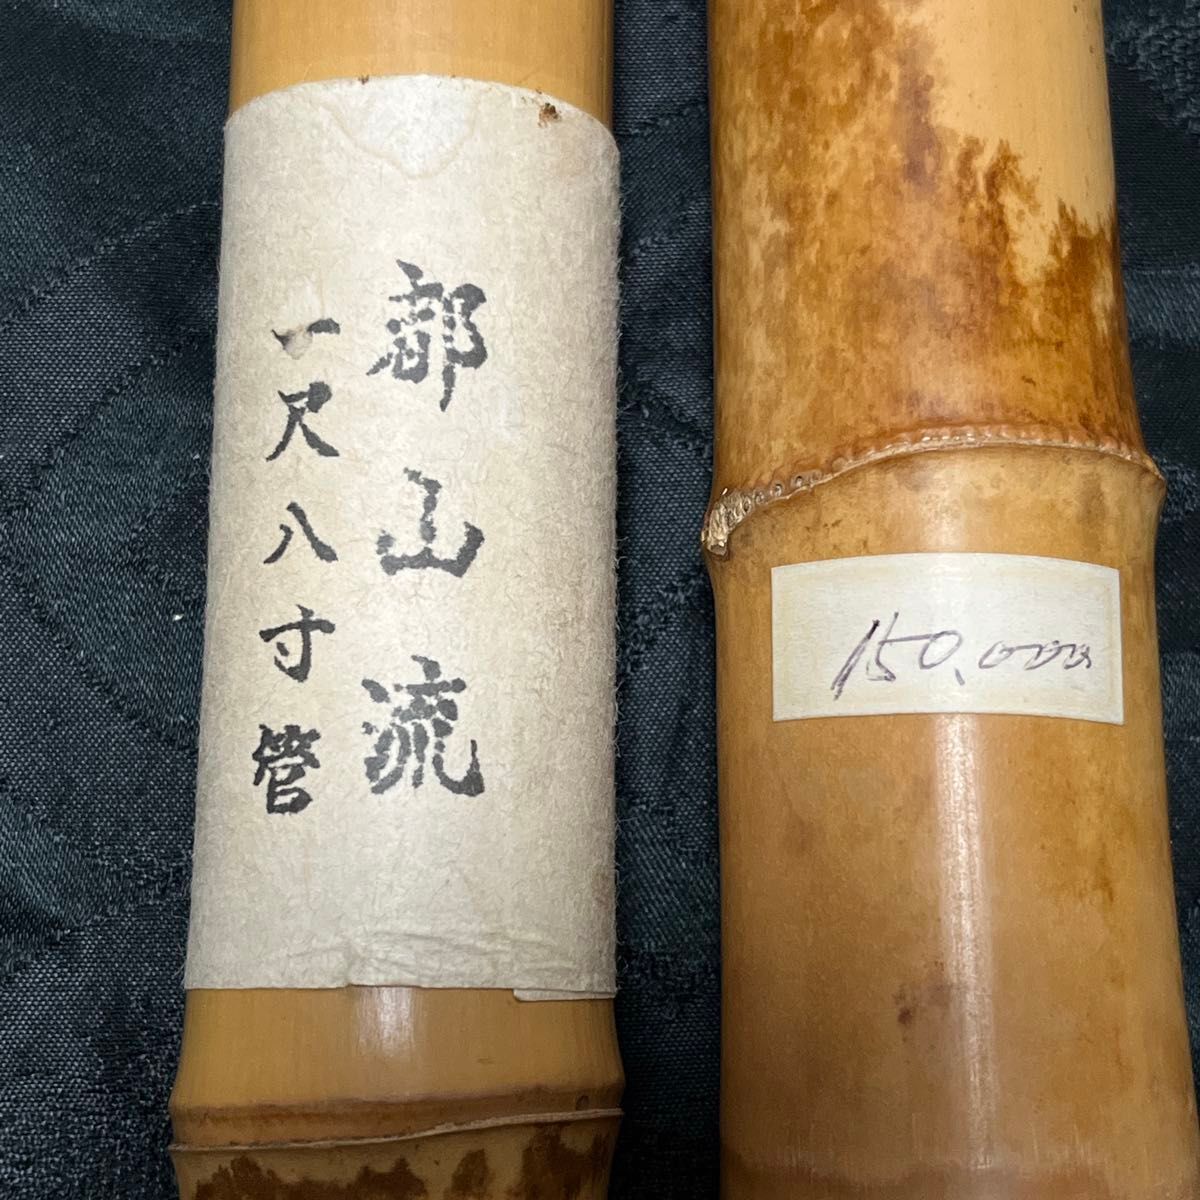 都山流
一尺八寸管
150,000